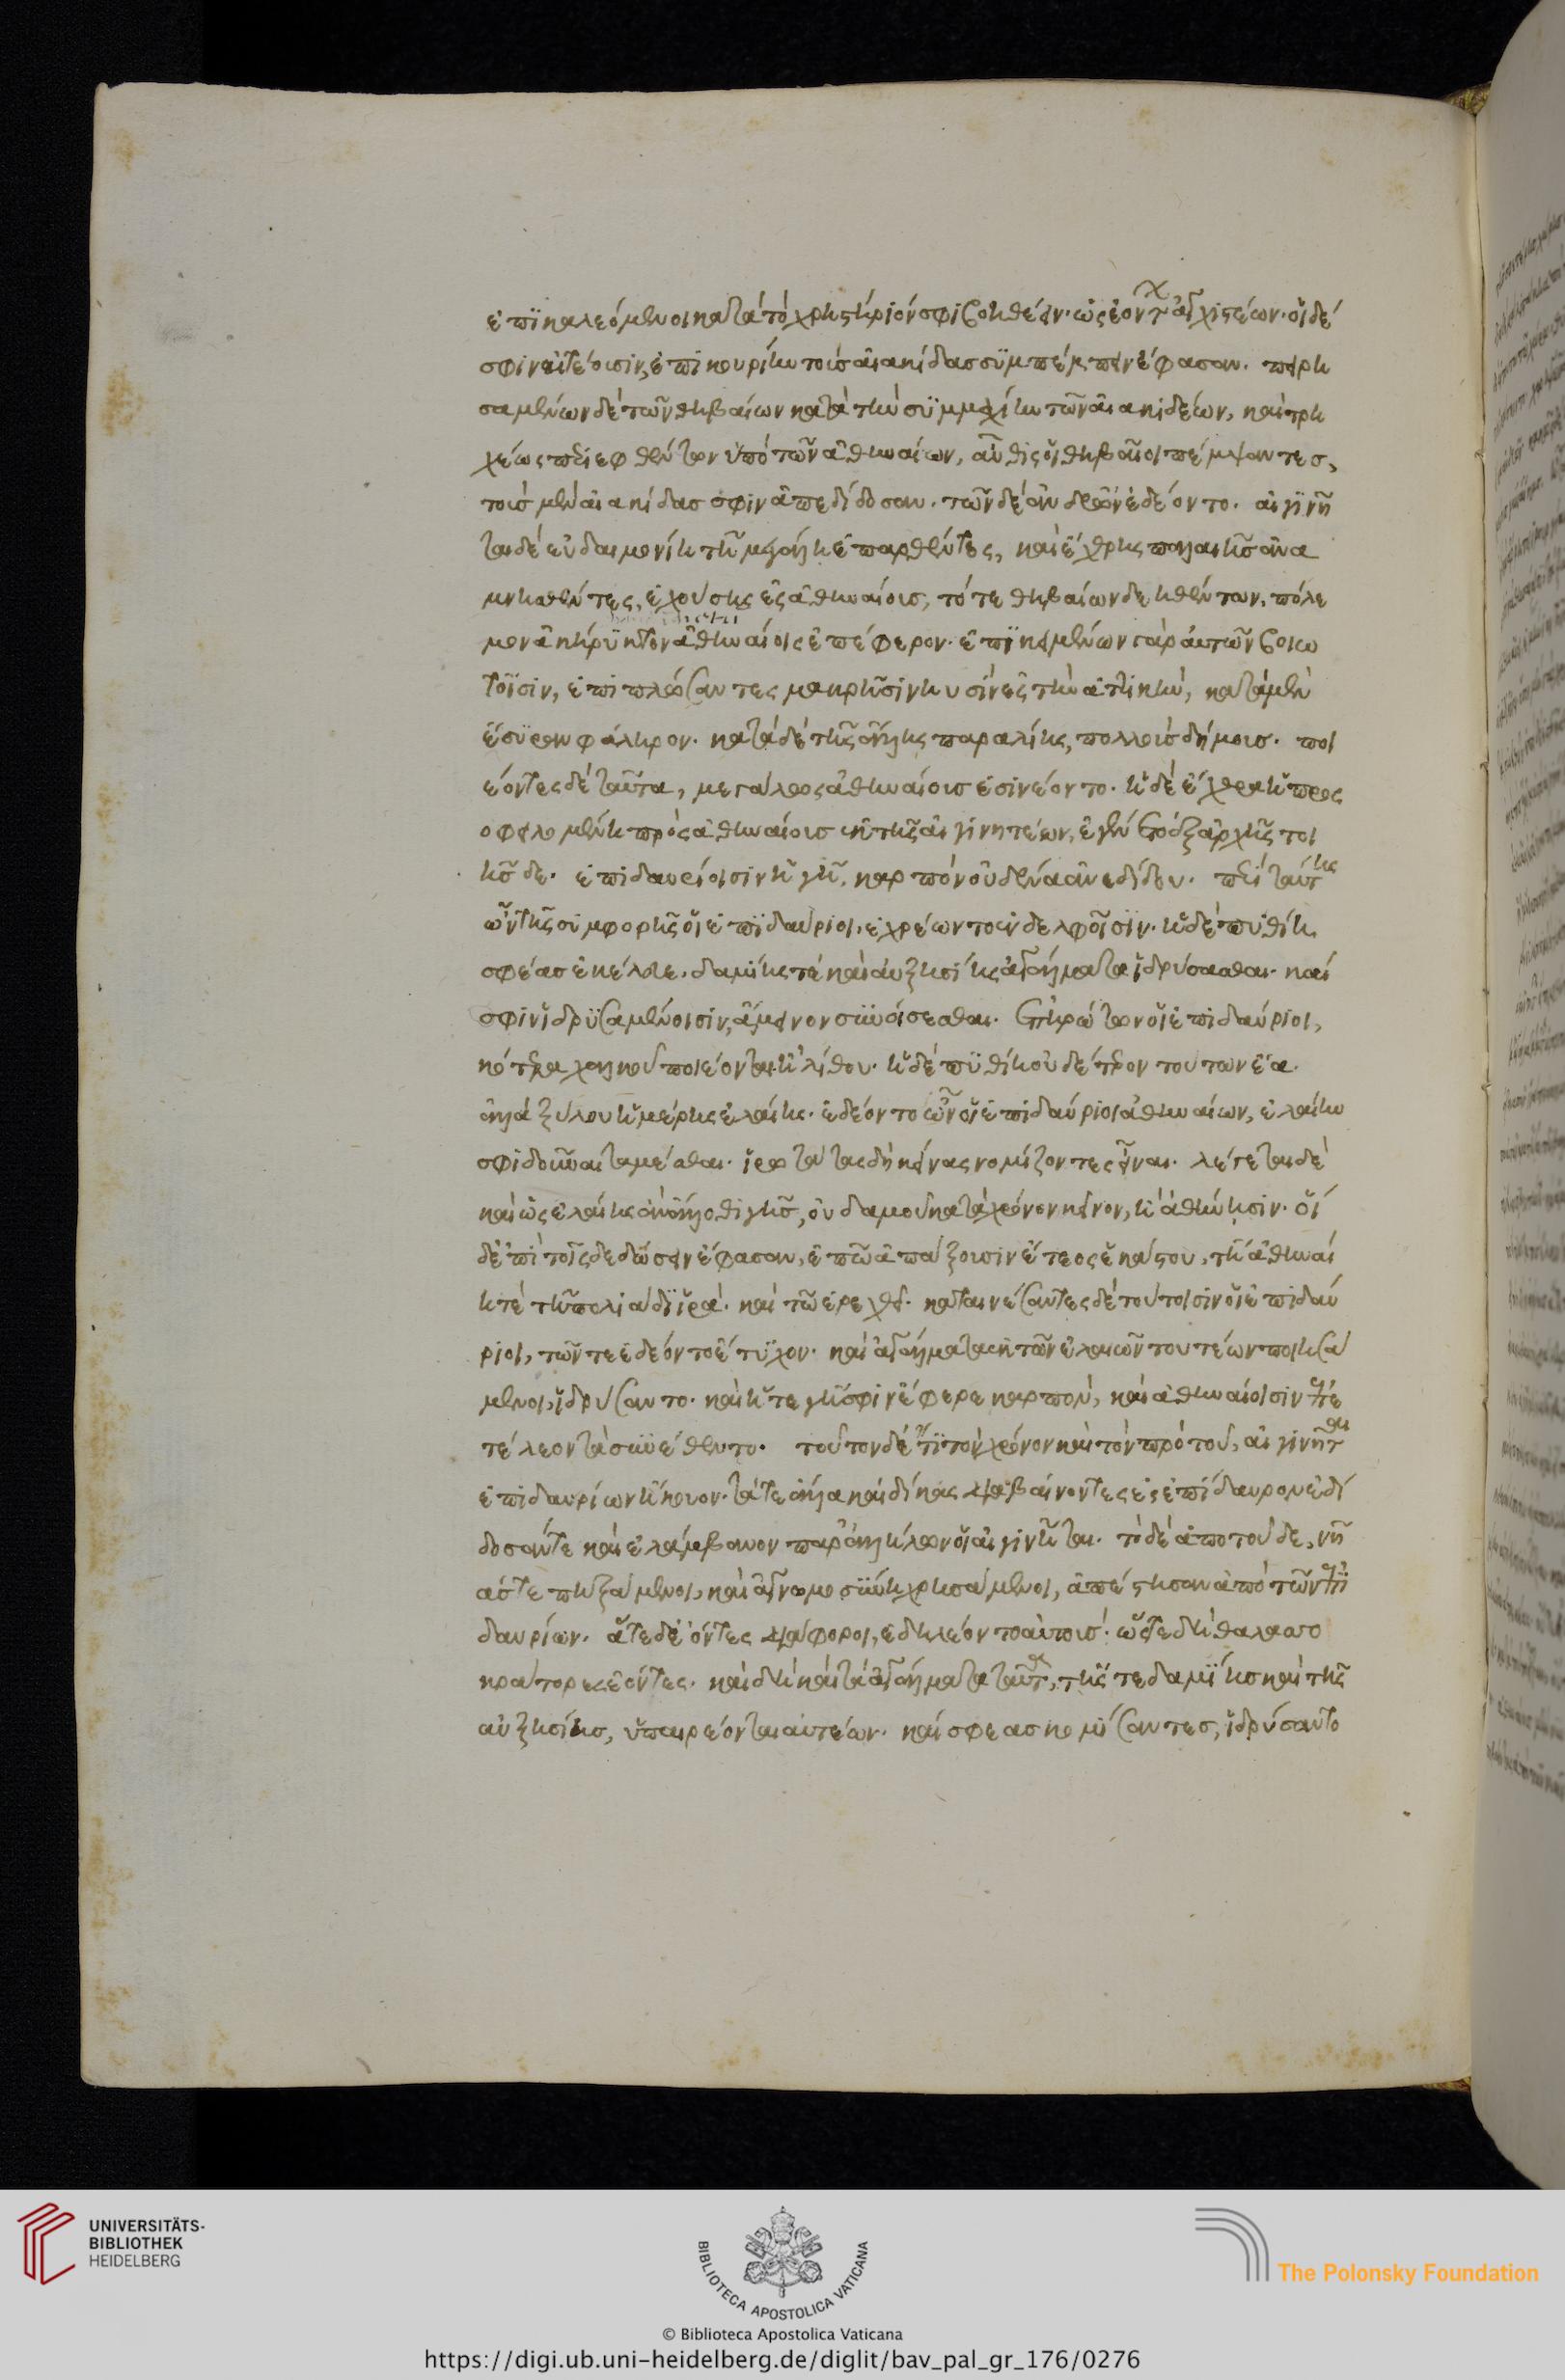 ἐπικαλεόμενοι κατὰ τὸ χρηστήριόν σφι βοηθέειν· ὡς ἐόντων ἀγχιστέων· οἱ δέ
σφιν αἰτέουσιν, ἐπικουρίην τοὺς αἰακίδας συμπέμπειν ἔφασαν. πειρη
σαμένων δὲ τῶν θηβαίων κατὰ τὴν συμμαχίην τῶν αἰακιδέων, καὶ τρη
χέως περιεφθέντων ὑπὸ τῶν ἀθηναίων, αὖθις οἱ θηβαῖοι πέμψαντες,
τοὺς μὲν αἰακίδας σφιν ἀπεδίδοσαν. τῶν δὲ ἀνδρῶν ἐδέοντο. αἰγινῆ
ται δὲ εὐδαιμονίη τῆ μεγάλη ἐπαρθέντες, καὶ ἔχθρης παλαιῆς ἀνα
μνησθέντες, ἐχούσης ἐς ἀθηναίους, τότε θηβαίων δεηθέντων, πόλε
μον ἀκήρυκτον ἀθηναίοις ἐπέφερον. ἐπικειμένων γὰρ αὐτῶν βοιω
τοῖσιν, ἐπιπλώσαντες μακρῆσι νηυσὶν ἐς τὴν ἀττικὴν, κατὰ μὲν
ἔσυρον φάληρον. κατὰ δὲ τῆς ἄλλης παραλίης, πολλοὺς δήμους. ποι
εόντες δὲ ταῦτα, μεγάλως ἀθηναίους ἐσινέοντο. ἡ δὲ ἔχθρη ἡ προ
οφειλομένη πρὸς ἀθηναίους ἐκ τῆς αἰγινητέων, ἐγένετο ἐξ ἀρχῆς τοι
ῆσδε. ἐπιδαυρίοισιν ἡ γῆ, καρπὸν οὐδένα ἀνεδίδου. περὶ ταύτης
ὦν τῆς συμφορῆς οἱ ἐπιδαύριοι, ἐχρέωντο ἐν δελφοῖσιν. ἡ δὲ πυθίη
σφέας ἐκέλευε. δαμίης τὲ καὶ αὐξησίης ἀγάλματα ἱδρύσασθαι. καί
σφιν ἱδρυσαμένοισιν, ἄμεινον συνοίσεσθαι. ἐπηρώτων οἱ ἐπιδαύριοι,
κότερα χαλκοῦ ποιέονται ἢ λίθου. ἡ δὲ πυθίη οὐδέτερον τούτων ἔα.
ἀλλὰ ξύλου ἡμέρης ἐλαίης. ἐδέοντο ὦν οἱ ἐπιδαύριοι ἀθηναίων, ἐλαίην
σφι δοῦναι ταμέσθαι. ἱρωτάτας δὴ κείνας νομίζοντες εἶναι. λέγεται δὲ
καὶ ὡς ἐλαῖαι ἦσαν ἄλλοθι γῆς, οὐδαμοῦ κατὰ χρόνον κεῖνον, ἢ ἀθήνησιν. οἱ
δὲ ἐπὶ τοῖσδε δώσειν ἔφασαν, ἐπ' ὧ ἀπάξουσιν ἔτεος ἑκάστου, τῆ ἀθηναί
η τὲ τῆ πολιάδι ἱρά. καὶ τῶ ἐρεχθεῖ. καταινέσαντες δὲ τούτοισιν οἱ ἐπιδαύ
ριοι, τῶν τε ἐδέοντο ἔτυχον. καὶ ἀγάλματα ἐκ τῶν ἐλαιῶν τουτέων ποιησά
μενοι, ἱδρύσαντο. καὶ ἥ τε γῆ σφιν ἔφερε καρπὸν, καὶ ἀθηναίοισιν ἐπε
τέλεον τὰ συνέθεντο. τοῦτον δὲ ἔτι τὸν χρόνον καὶ τὸν πρὸ τοῦ, αἰγινῆται
ἐπιδαυρίων ἤκουον. τά τε ἄλλα καὶ δίκας διαβαίνοντες ἐς ἐπίδαυρον ἐδί
δοσάν τε καὶ ἐλάμβανον παρ' ἀλλήλων οἱ αἰγινῆται. τὸ δὲ ἀπὸ τοῦδε, νῆ
άς τε πηξάμενοι, καὶ ἀγνωμοσύνη χρησάμενοι, ἀπέστησαν ἀπὸ τῶν ἐπι
δαυρίων. ἅτε δὲ ὄντες διάφοροι, ἐδηλέοντο αὐτούς. ὥστε δὴ θαλασσο
κράτορες ἐόντες. καὶ δὴ καὶ τὰ ἀγάλματα ταῦτα, τῆς τε δαμίης καὶ τῆς
αὐξησίης, ὑπαιρέονται αὐτέων. καί σφεας κομίσαντες, ἱδρύσαντο
UNIVERSITÄTS-
BIBLIOTHEK
HEIDELBERG
BIBLIOTECA APOSTOLICA VATICANA
The Polonsky Foundation
© Biblioteca Apostolica Vaticana
https://digi.ub.uni-heidelberg.de/diglit/bav_pal_gr_176/0276